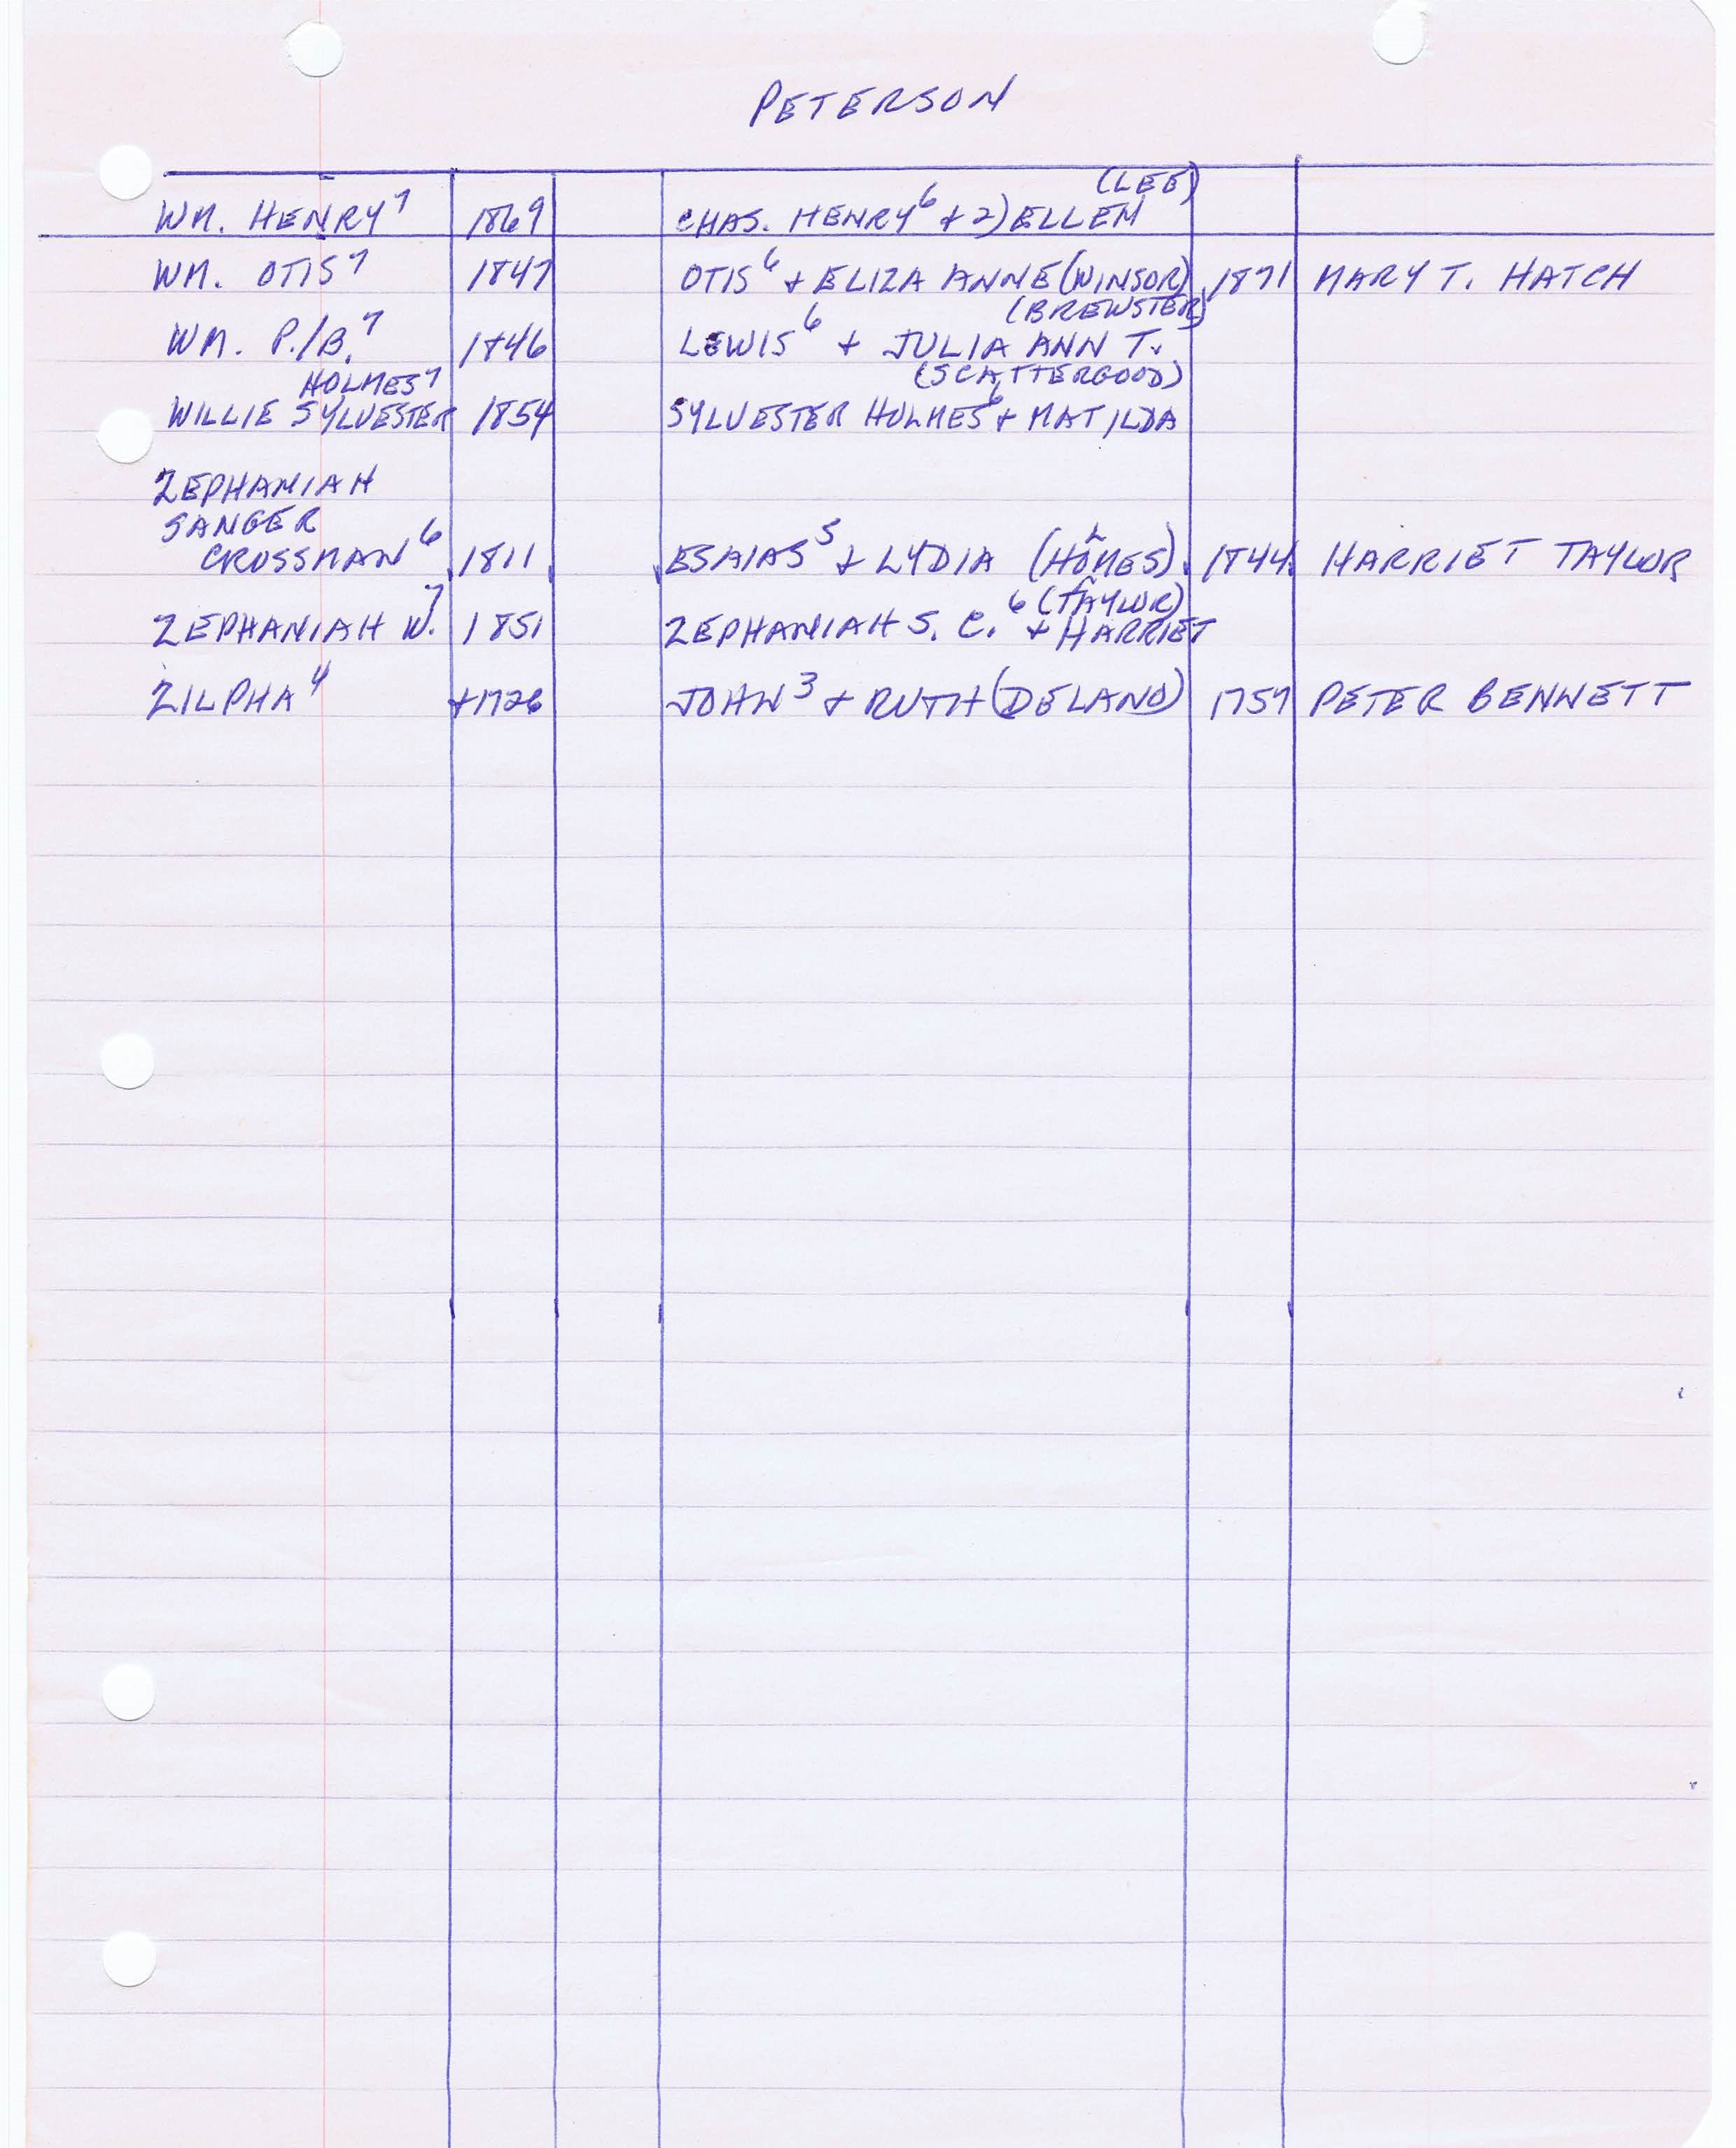 PETERSON
(LEE)
WM. HENRY⁷ 1869 CHAS. HENRY⁶ + 2) ELLEN
WM. OTIS⁷ 1847 OTIS⁶ + ELIZA ANNE (WINSOR) 1871 MARY T. HATCH
(BREWSTER)
WM. P./B.⁷ 1846 LEWIS⁶ + JULIA ANN T.
HOLMES⁷ (SCATTERGOOD)
WILLIE SYLVESTER 1854 SYLVESTER HOLMES⁶ + MATILDA
ZEPHANIAH
SANGER
CROSSMAN⁶ 1811 ESAIAS⁵ + LYDIA (HOLMES) 1844 HARRIET TAYLOR
(TAYLOR)
ZEPHANIAH W.⁷ 1851 ZEPHANIAH S. C.⁶ + HARRIET
ZILPHA⁴ +1726 JOHN³ + RUTH (DELANO) 1757 PETER BENNETT